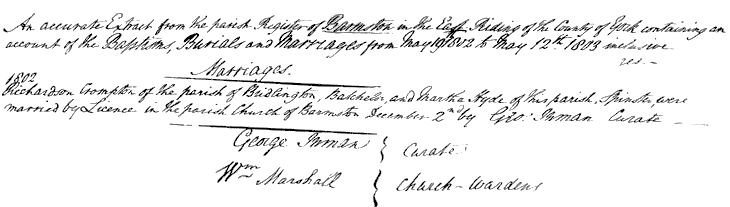 An accurate Extract from the parish Register of Barmston in the East Riding of the County of York containing an
account of the Baptisms, Burials and Marriages from May 19 1802 to May 12th 1803 inclusive
Marriages.
1802
Richardson Crompton of the parish of Bridlington, Batchelor, and Martha Hyde of this parish, Spinster, were
married by Licence in the parish Church of Barmston December 2nd by Geo: Inman Curate
George Inman } Curate.
Wm Marshall } Church-Wardens